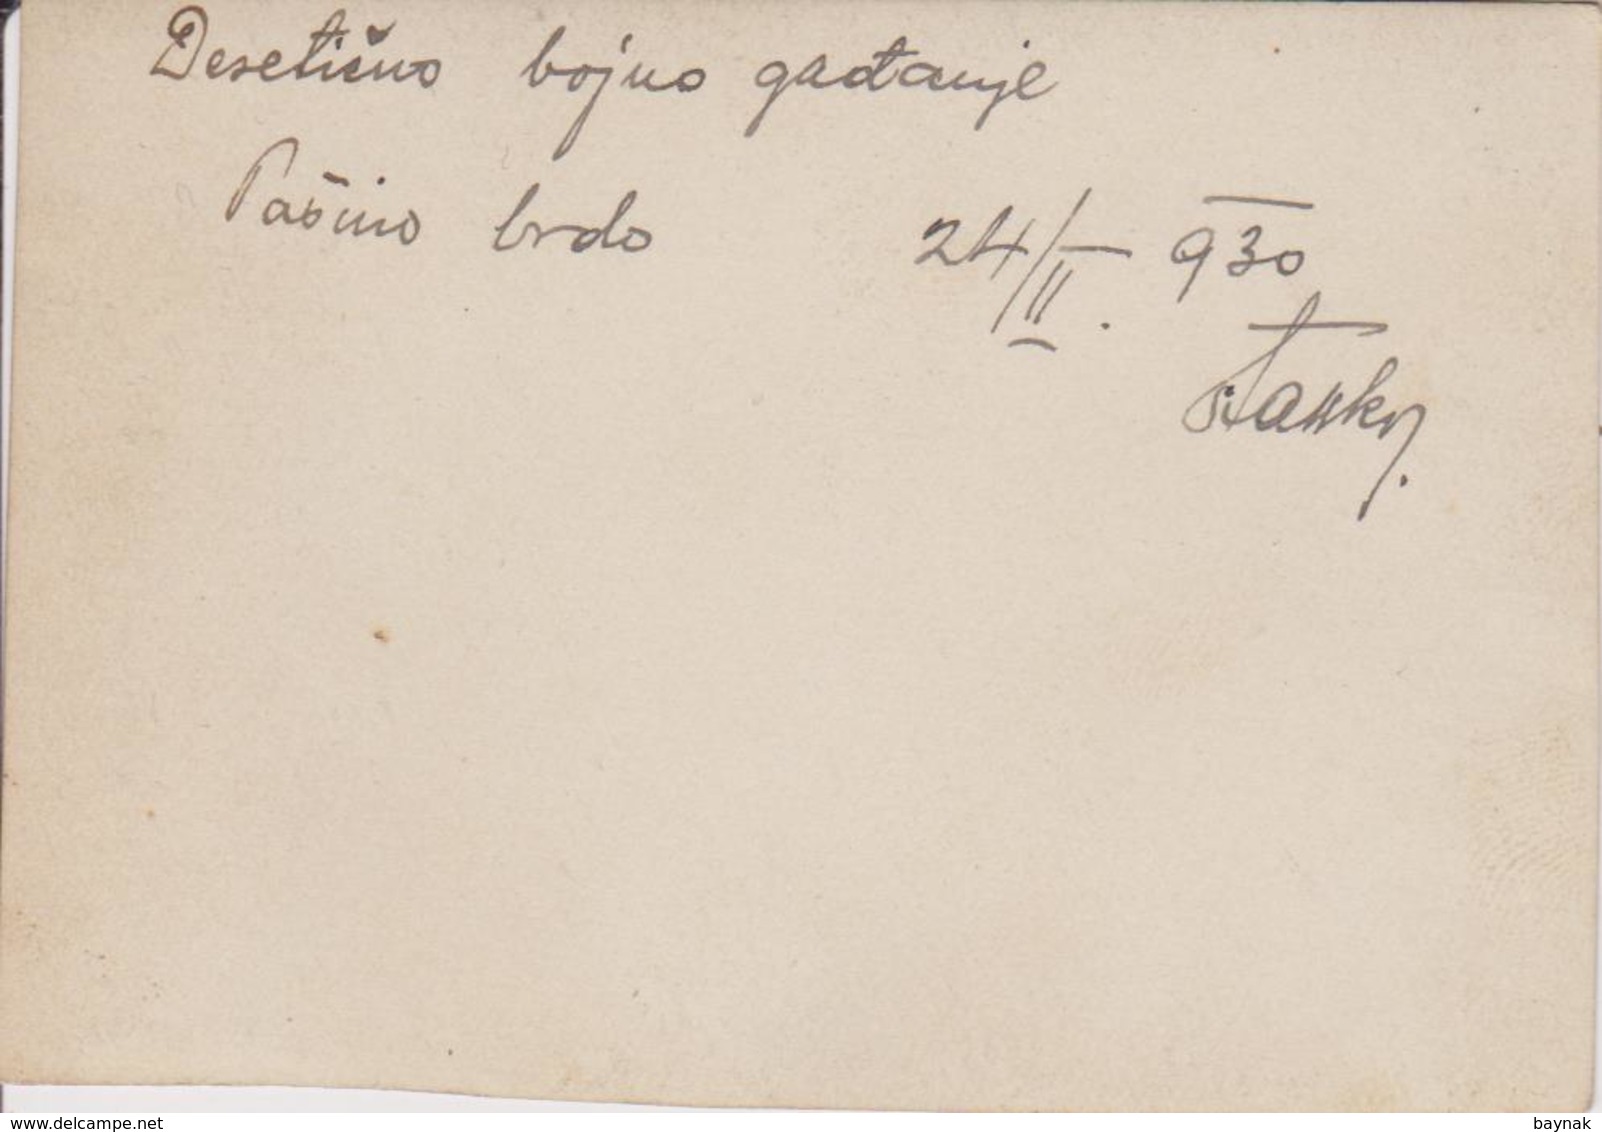 Desetično bojno gađanje
Pašino brdo 24/II. 930
Stanko
www.delcampe.net
baynak